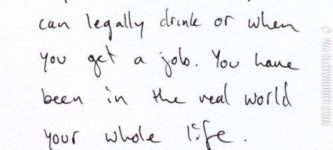 can legally drink or when
you get a job. You have
been in the real world
your whole life.